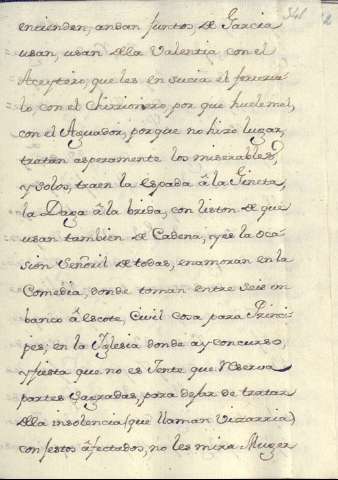 341
encienden; andan juntos, de Garcia
usan, usan della Valentia, con el
Aceytero, que les en sucia el ferrerue-
lo, con el Chirrionero, por que huele mal,
con el Aguador, porque no hizo lugar,
tratan asperamente los miserables,
y solos, traen la Espada â la Gineta,
la Daga â la brida, con liston de que
usan tambien de Cadena, y es la oca-
sion Señoril de todas, enamoran en la
Comedia, donde toman entre seis un
banco â escote, Civil cosa para Princi-
pes; en la Iglesia donde ay concurso,
y fiesta que no es Jente que reserva
partes Sagradas, para dejar de tratar
della insolencia (que llaman vizarria)
con jestos âfectados, no les mira Muger